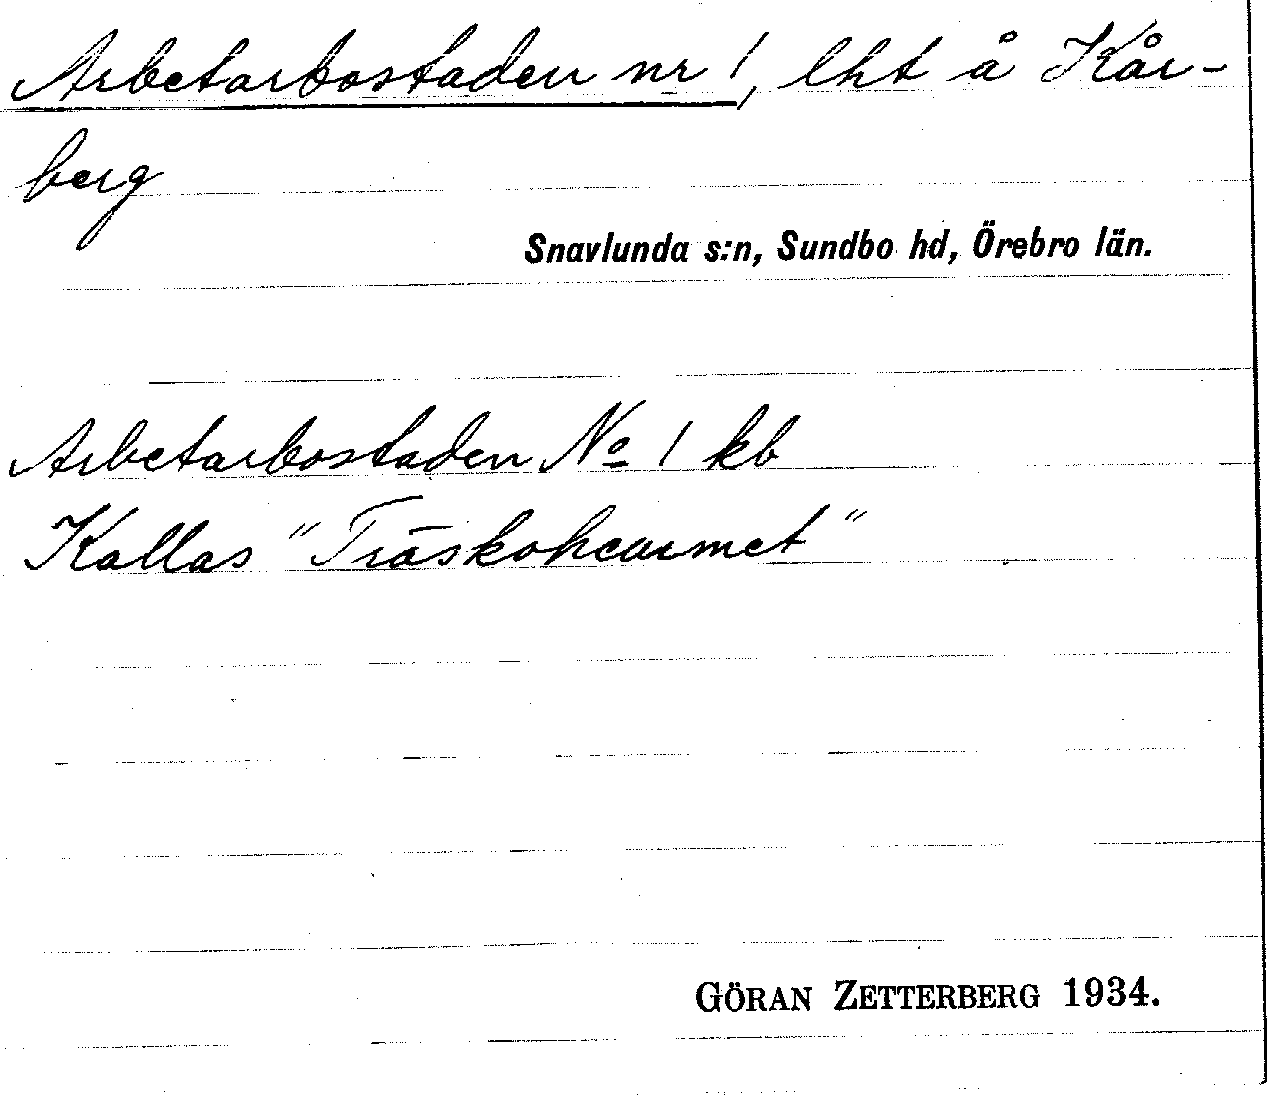 Arbetarbostaden nr 1, lht å Kår-
berg
Snavlunda s:n, Sundbo hd, Örebro län.
Arbetarbostaden No 1 kb
Kallas "
GÖRAN ZETTERBERG 1934.